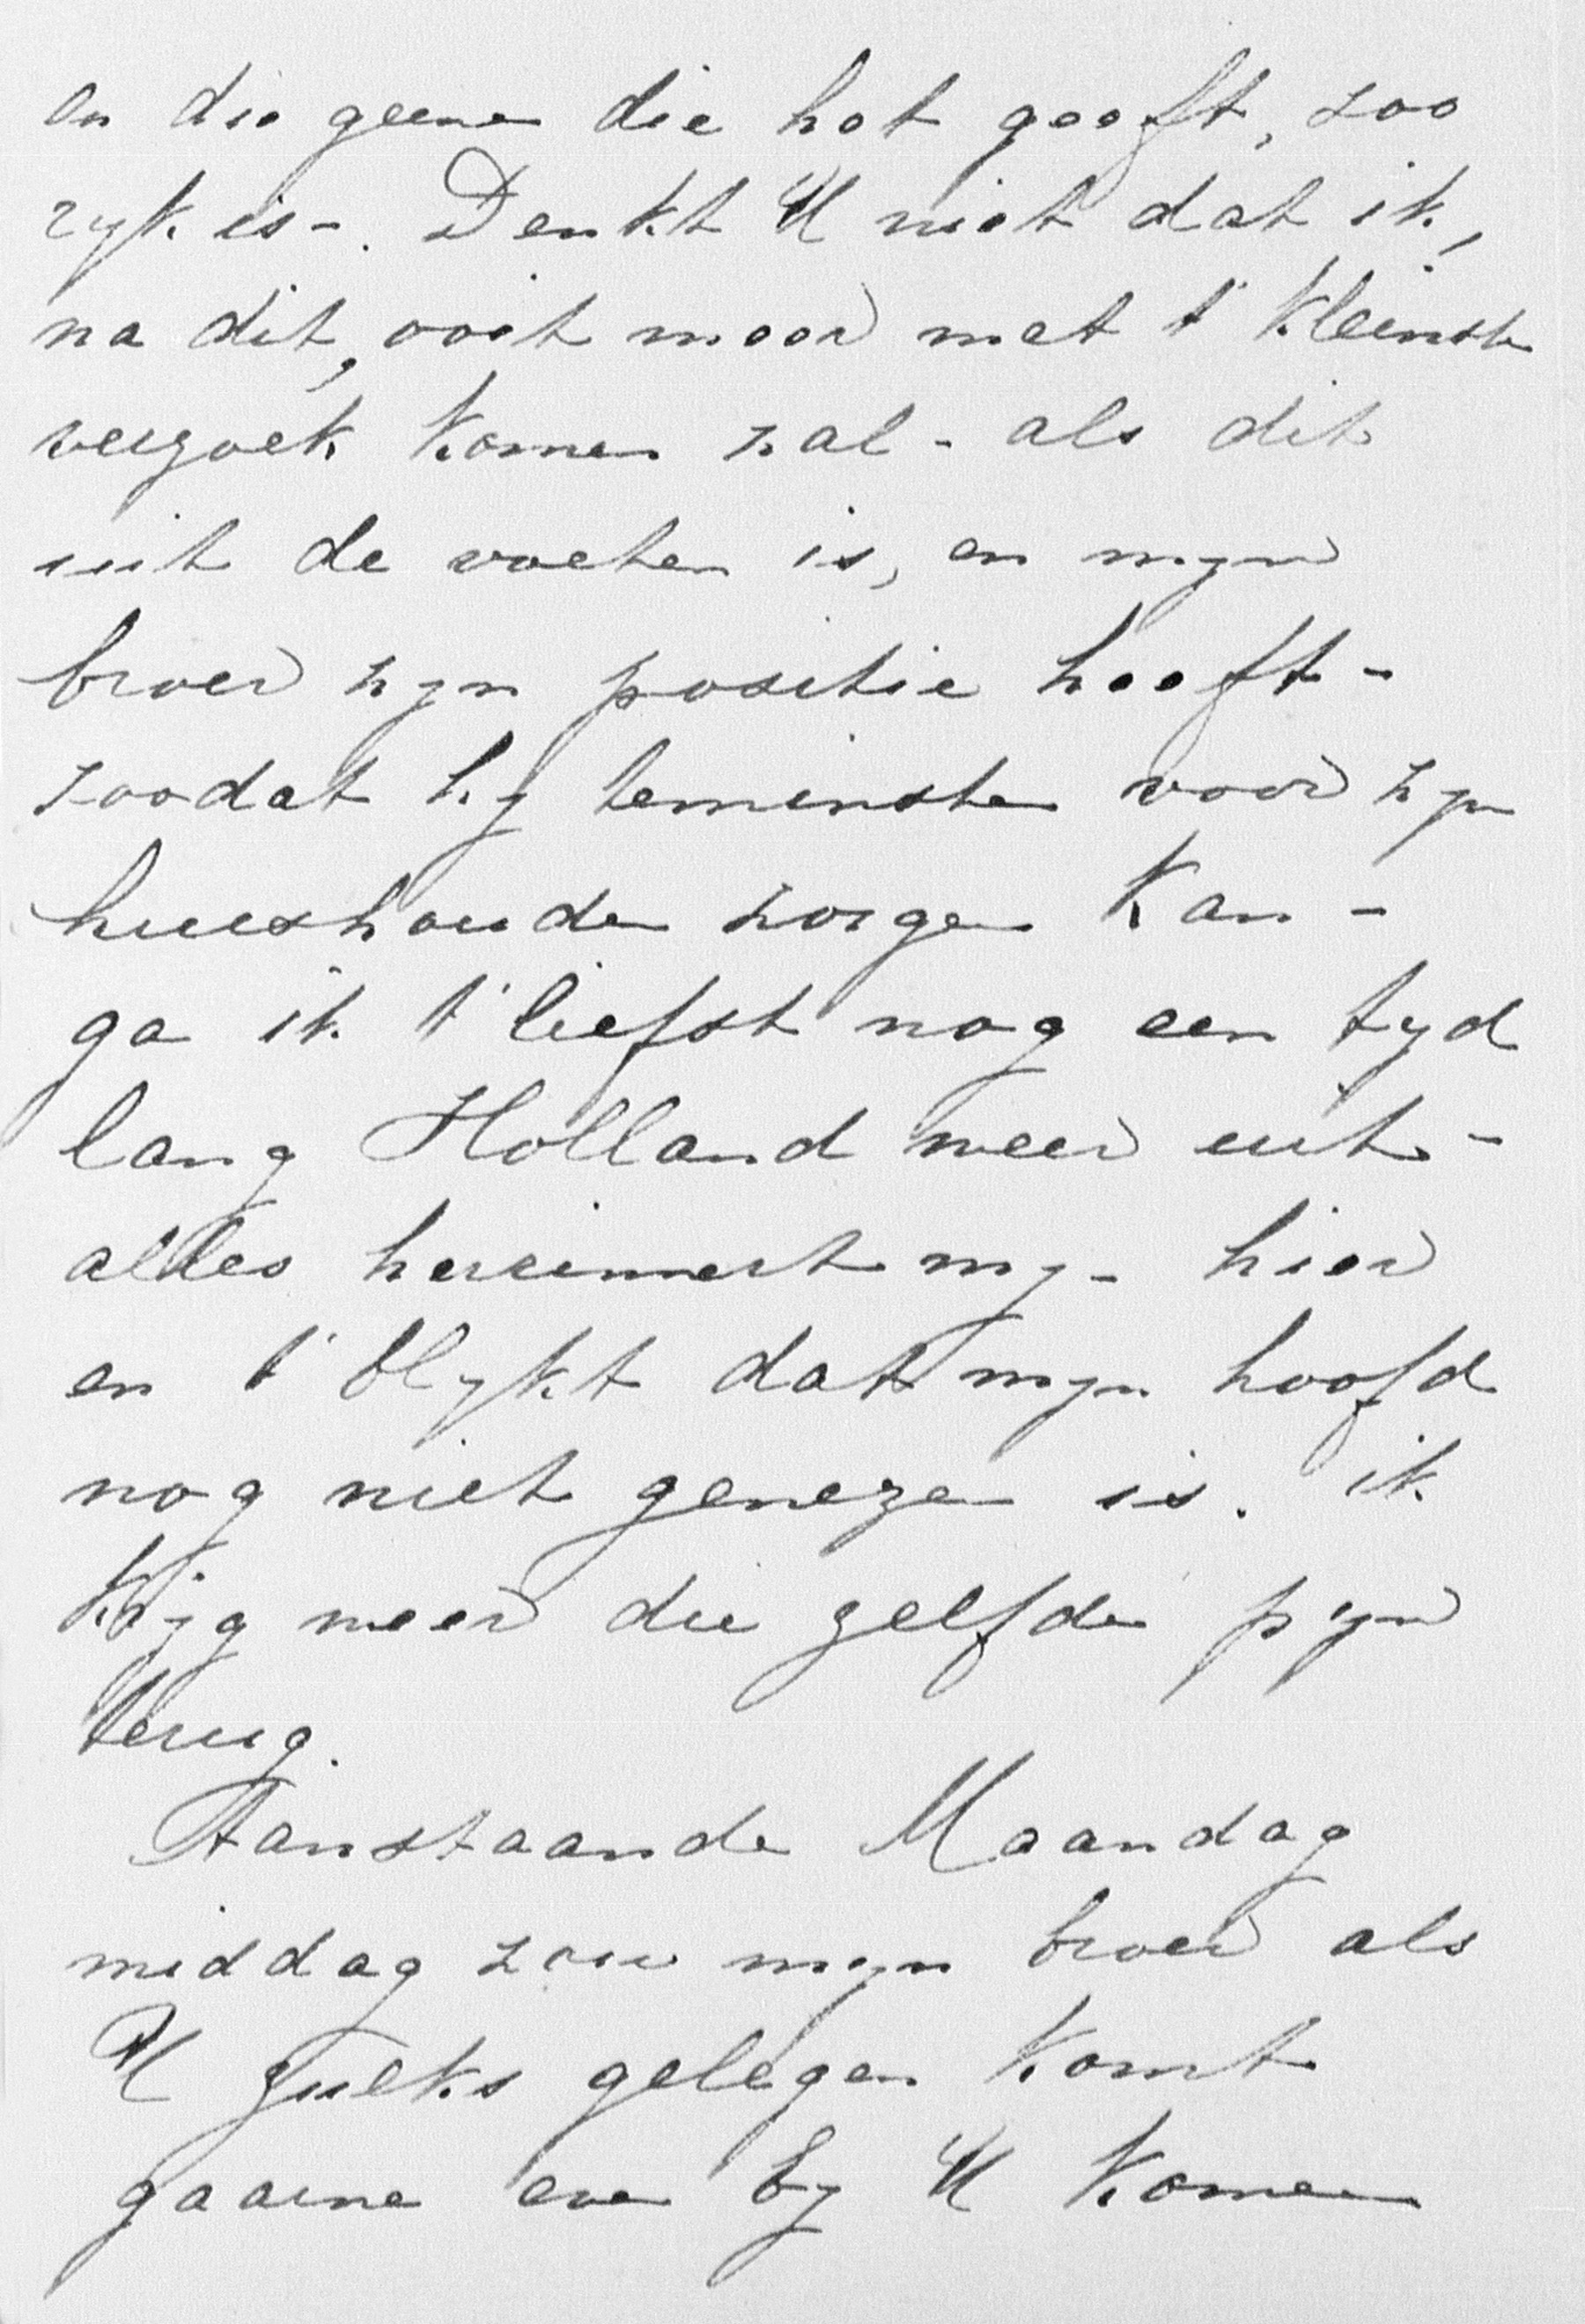 en die geene die het geeft, zoo
ryk is -. Denkt U niet dat ik,
na dit, ooit meer met t' kleinste
verzoek komen zal - als dit
uit de voeten is, en myn
broer zyn positie heeft -
zoodat hy teminsten voor zyn
huishouden zorgen kan -
ga ik t' liefst nog een tyd
lang Holland weer uit -
alles herinnert my - hier
en t' blykt dat myn hoofd
nog niet genezen is. ik
kryg weer die zelfde pyn
terug.
Aanstaande Maandag
middag zou myn broer als
U zulks gelegen komt
gaarne even by U komen